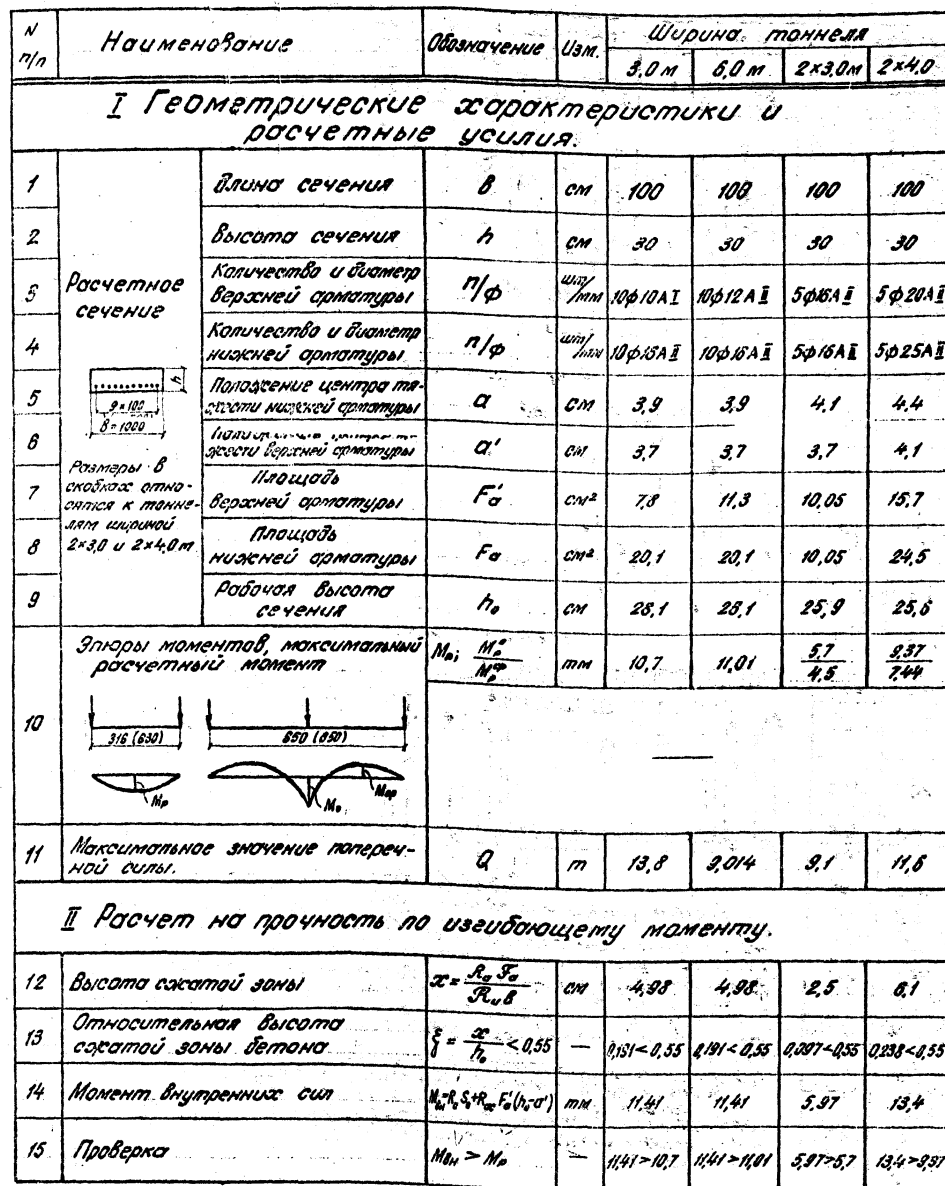 N п/п Наименование Обозначение Изм. Ширина тоннеля
3,0 м 6,0 м 2×3,0м 2×4,0
I Геометрические характеристики и
расчетные усилия.
Расчетное
сечение
h
9×100
B=1000
Размеры в
скобках отно-
сятся к тонне-
лям шириной
2×3,0 и 2×4,0 м
1 Длина сечения B см 100 100 100 100
2 Высота сечения h см 30 30 30 30
3 Количество и диаметр
верхней арматуры n/ф шт/мм 10ф10АI 10ф12АII 5ф16АII 5ф20АII
4 Количество и диаметр
нижней арматуры n/ф шт/мм 10ф16АII 10ф16АII 5ф16АII 5ф25АII
5 Положение центра тя-
жести нижней арматуры a см 3,9 3,9 4,1 4,4
6 жести верхней арматуры a' см 3,7 3,7 3,7 4,1
7 Площадь
верхней арматуры F'a см² 7,8 11,3 10,05 15,7
8 Площадь
нижней арматуры Fa см² 20,1 20,1 10,05 24,5
9 Рабочая высота
сечения h₀ см 26,1 26,1 25,9 25,6
10 Эпюры моментов, максимальный
расчетный момент Mр; Mр°/Mрср тм 10,7 11,01 5,7/4,5 9,37/7,44
316 (630) 650 (850)
Mр M₀ Mср
11 Максимальное значение попереч-
ной силы. Q т 13,8 9,014 9,1 11,6
II Расчет на прочность по изгибающему моменту.
12 Высота сжатой зоны x = RaFa/RuB см 4,98 4,98 2,5 6,1
13 Относительная высота
сжатой зоны бетона ξ = x/h₀ < 0,55 — 0,191<0,55 0,191<0,55 0,097<0,55 0,238<0,55
14 Момент внутренних сил тм 11,41 11,41 5,97 13,4
15 Проверка Mвн > Mр — 11,41>10,7 11,41>11,01 5,97>5,7 13,4>9,37